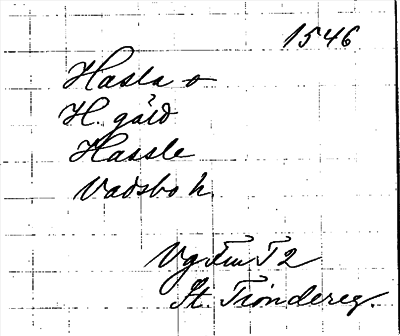 1546
Hasla o
H. gård
Hassle
Vadsbo h.
Vg Fm T 2
St. Tiondereg.